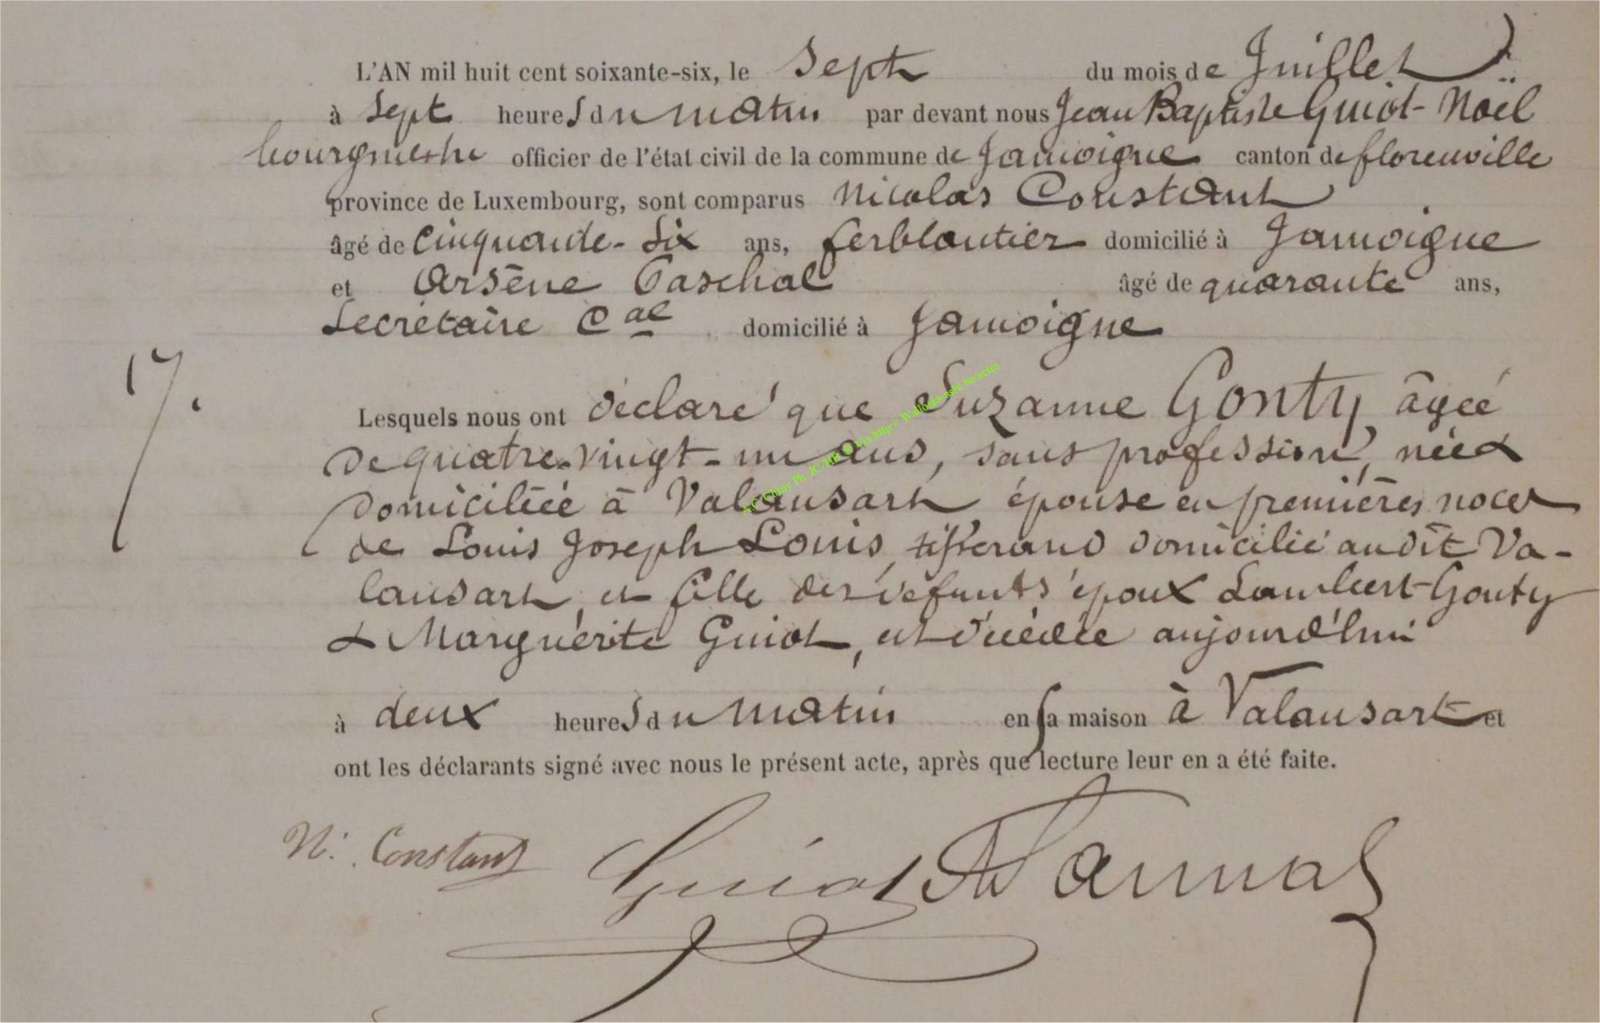 L'AN mil huit cent soixante-six, le Sept du mois de Juillet
à Sept heures du matin par devant nous Jean Baptiste Guiot-Noël
bourgmestre officier de l'état civil de la commune de Jamoigne canton de florenville
province de Luxembourg, sont comparus Nicolas Constant
âgé de Cinquante-Six ans, ferblantier domicilié à Jamoigne
et Arsène Paschal âgé de quarante ans,
Secrétaire Cal domicilié à Jamoigne
17.
Lesquels nous ont déclaré que Suzanne Gonty, âgée
de quatre-vingt-un ans, sans profession, née &
domiciliée à Valansart, épouse en premières noces
de Louis Joseph Louis, tisserand domicilié audit Va-
lansart, et fille des défunts époux Lambert Gonty
& Marguérite Guiot, est décédée aujourd'hui
à deux heures du matin en sa maison à Valansart et
ont les déclarants signé avec nous le présent acte, après que lecture leur en a été faite.
N. Constant Guiot